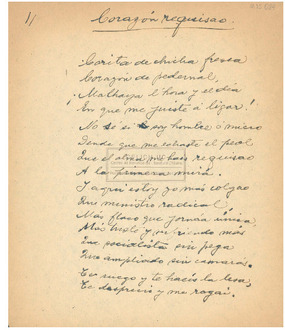 1/
Corazón requisao.
Carita de chicha fresca
Corazón de pedernal,
¡Malhaya l'hora y el día
En que me juiste a ligar!
No sé si soy hombre o mico
Desde que me echaste el peal
Que el alma me has requisao
A la primera mirá.
I aquí estoy yo más colgao
Que ministro radical,
Más flaco que jornáa única,
Más solo y sufriendo más
Que socialista sin pega
Que ampliado sin camaras.
Te ruego y te hacís la lesa,
Te desprecio y me rogai.